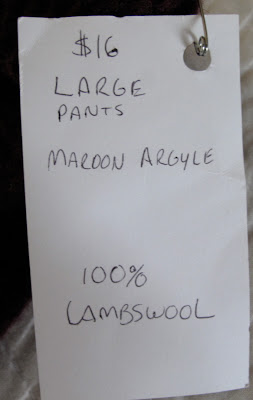 $16
LARGE
PANTS
MAROON ARGYLE
100%
LAMBSWOOL